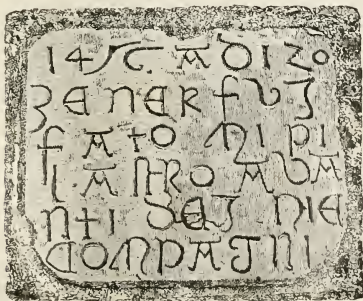 1456 A DI 20
ZENER FV
FATO MI PI
LANTRO AVA
NTI SEI MIE
COMPAGNI